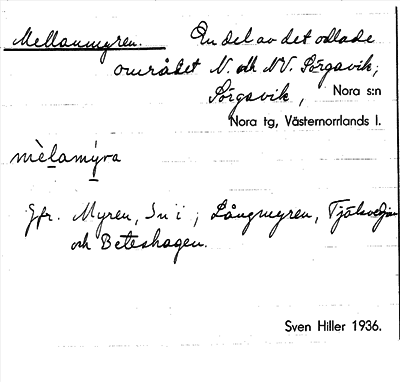 Mellanmyren. En del av det odlade
området N. och NV. Sörgavik,
Sörgavik, Nora s:n
Nora tg, Västernorrlands l.
mèlamýra
Jfr. Myren, Sn i; Långmyren,
och Beteshagen.
Sven Hiller 1936.